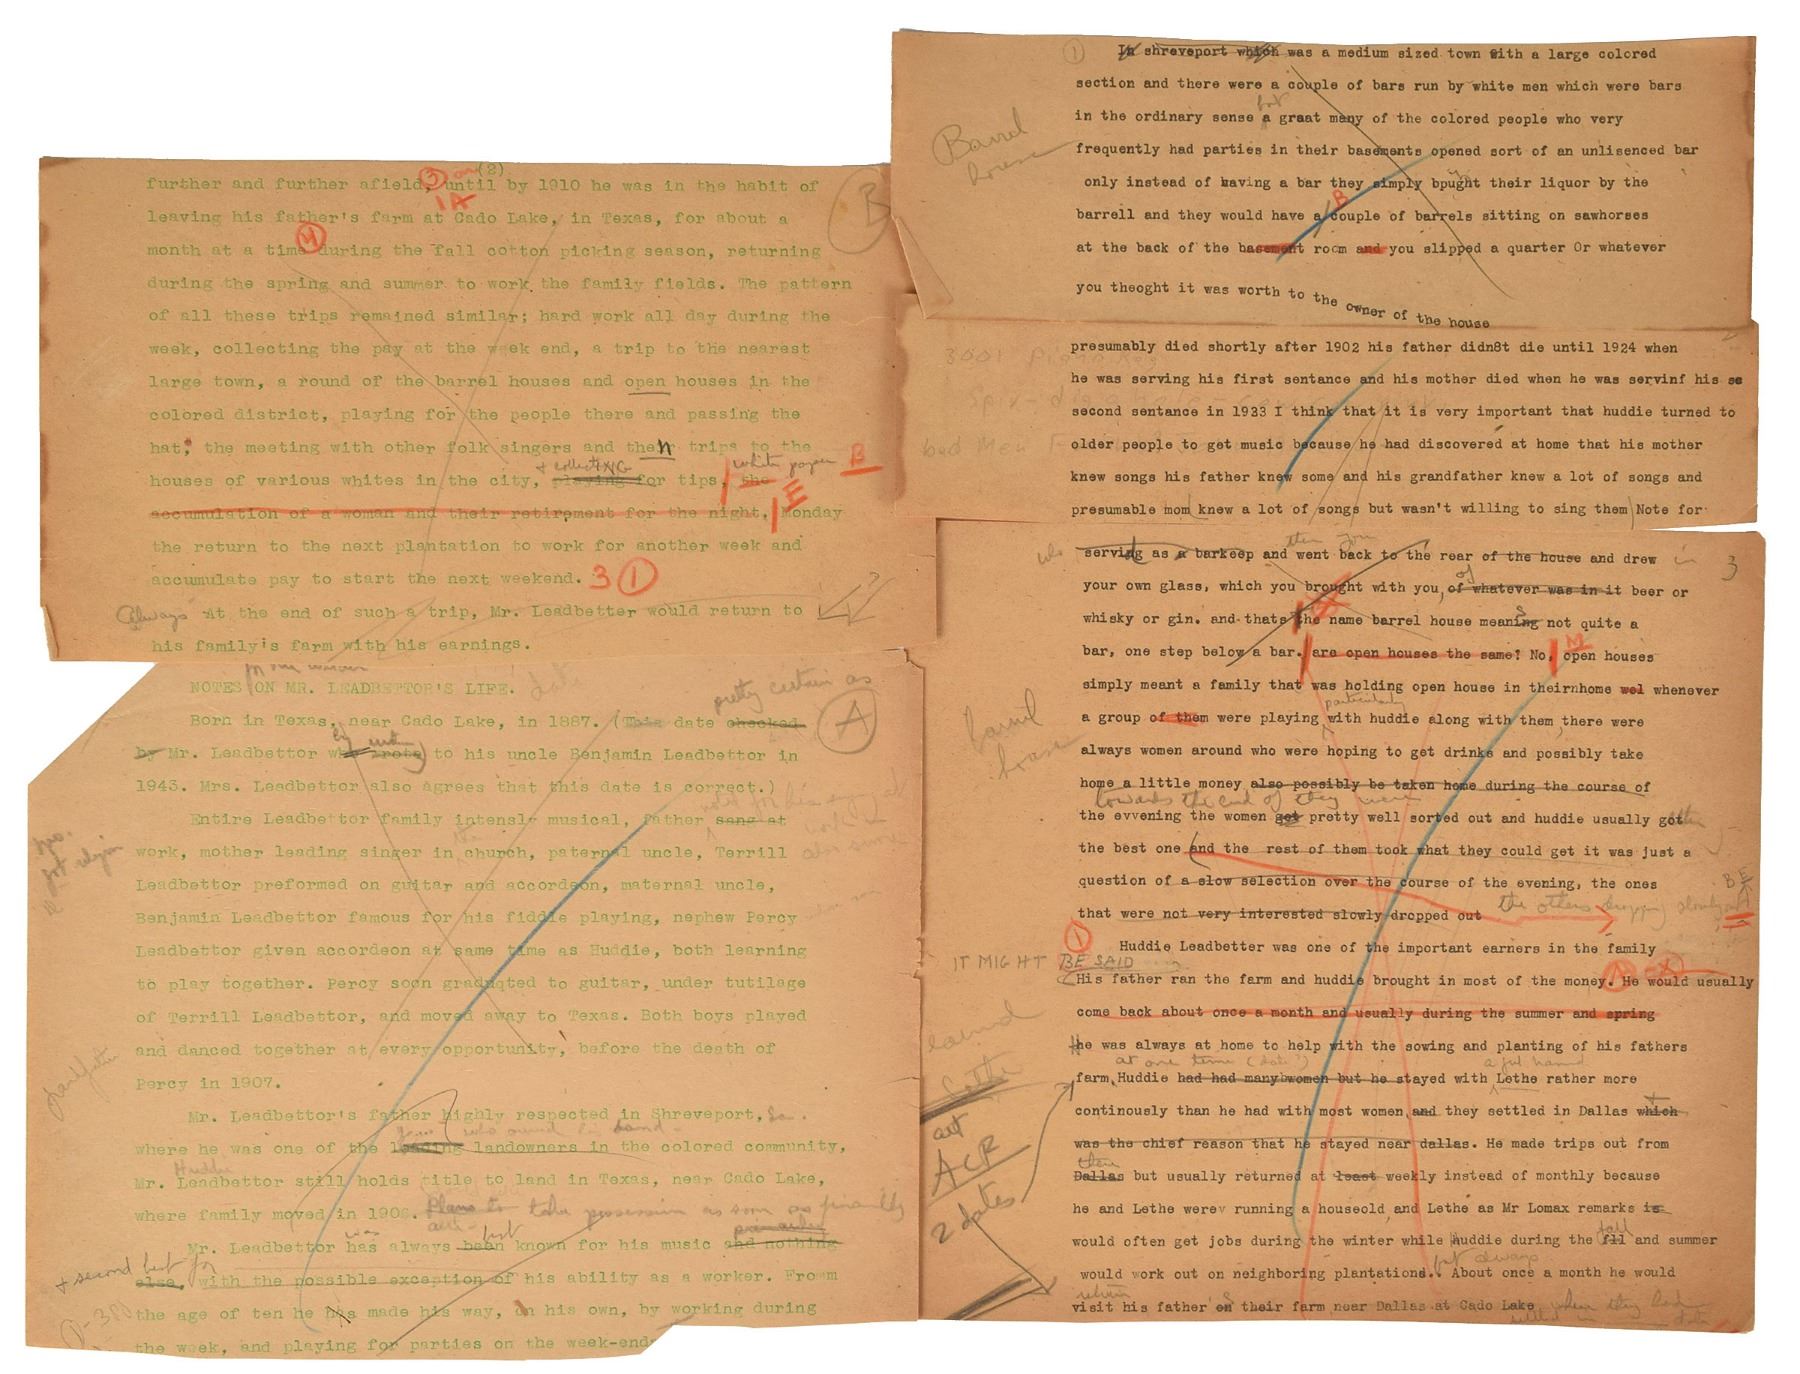 further and further afield, until by 1910 he was in the habit of
leaving his father's farm at Cado Lake, in Texas, for about a
month at a time during the fall cotton picking season, returning
during the spring and summer to work the family fields. The pattern
of all these trips remained similar; hard work all day during the
week, collecting the pay at the week end, a trip to the nearest
large town, a round of the barrel houses and open houses in the
colored district, playing for the people there and passing the
hat; the meeting with other folk singers and then trips to the
+ collecting white paper B
houses of various whites in the city, playing for tips, the
accumulation of a woman and their retirement for the night, Monday
the return to the next plantation to work for another week and
accumulate pay to start the next weekend. 3 1
Always At the end of such a trip, Mr. Leadbetter would return to
his family's farm with his earnings.
B
NOTES ON MR. LEADBETTOR'S LIFE.
pretty certain as
Born in Texas, near Cado Lake, in 1887. (This date checked
A
by Mr. Leadbettor who wrote) to his uncle Benjamin Leadbettor in
1943. Mrs. Leadbettor also agrees that this date is correct.)
Entire Leadbettor family intensly musical, father sang at
work, mother leading singer in church, paternal uncle, Terrill
Leadbettor preformed on guitar and accordeon, maternal uncle,
Benjamin Leadbettor famous for his fiddle playing, nephew Percy
Leadbettor given accordeon at same time as Huddie, both learning
to play together. Percy soon graduated to guitar, under tutilage
of Terrill Leadbettor, and moved away to Texas. Both boys played
and danced together at every opportunity, before the death of
Percy in 1907.
Mr. Leadbettor's father highly respected in Shreveport, La.
who owned his land
where he was one of the leading landowners in the colored community,
Huddie
Mr. Leadbettor still holds title to land in Texas, near Cado Lake,
where family moved in 1908. Plans to take possession as soon as financially
was best
Mr. Leadbettor has always been known for his music and nothing
+ second best for
else, with the possible exception of his ability as a worker. From
the age of ten he has made his way, on his own, by working during
the week, and playing for parties on the week-ends
1
In shreveport which was a medium sized town with a large colored
section and there were a couple of bars run by white men which were bars
but
in the ordinary sense a graat many of the colored people who very
Barrel house
frequently had parties in their basements opened sort of an unlisenced bar
only instead of having a bar they simply bpught their liquor by the
barrell and they would have a couple of barrels sitting on sawhorses
at the back of the basement room and you slipped a quarter Or whatever
you theoght it was worth to the owner of the house
presumably died shortly after 1902 his father didn8t die until 1924 when
he was serving his first sentance and his mother died when he was servinf his se
second sentance in 1933 I think that it is very important that huddie turned to
older people to get music because he had discovered at home that his mother
knew songs his father knew some and his grandfather knew a lot of songs and
presumable mom knew a lot of songs but wasn't willing to sing them Note for
then you
serving as a barkeep and went back to the rear of the house and drew in
3
your own glass, which you brought with you, of whatever was in it beer or
whisky or gin. and thats the name barrel house meaning not quite a
bar, one step below a bar. are open houses the same? No, open houses
M
simply meant a family that was holding open house in theirnhome wel whenever
particularly
a group of them were playing with huddie along with them, there were
barrel house
always women around who were hoping to get drinks and possibly take
home a little money also possibly be taken home during the course of
towards the end of they were
the evvening the women got pretty well sorted out and huddie usually got
the best one and the rest of them took what they could get it was just a
question of a slow selection over the course of the evening, the ones
that were not very interested slowly dropped out the others dropping slowly
1
Huddie Leadbetter was one of the important earners in the family
IT MIGHT BE SAID
His father ran the farm and huddie brought in most of the money. He would usually
come back about once a month and usually during the summer and spring
he was always at home to help with the sowing and planting of his fathers
at one time (date?)
farm, Huddie had had many women but he stayed with Lethe rather more
continously than he had with most women, and they settled in Dallas which
was the chief reason that he stayed near dallas. He made trips out from
ACR
2 dates
Dallas but usually returned at least weekly instead of monthly because
he and Lethe werev running a houseold, and Lethe as Mr Lomax remarks is
fall
would often get jobs during the winter while huddie during the fll and summer
but always
would work out on neighboring plantations.. About once a month he would
return
visit his father on their farm near Dallas at Cado Lake when they had